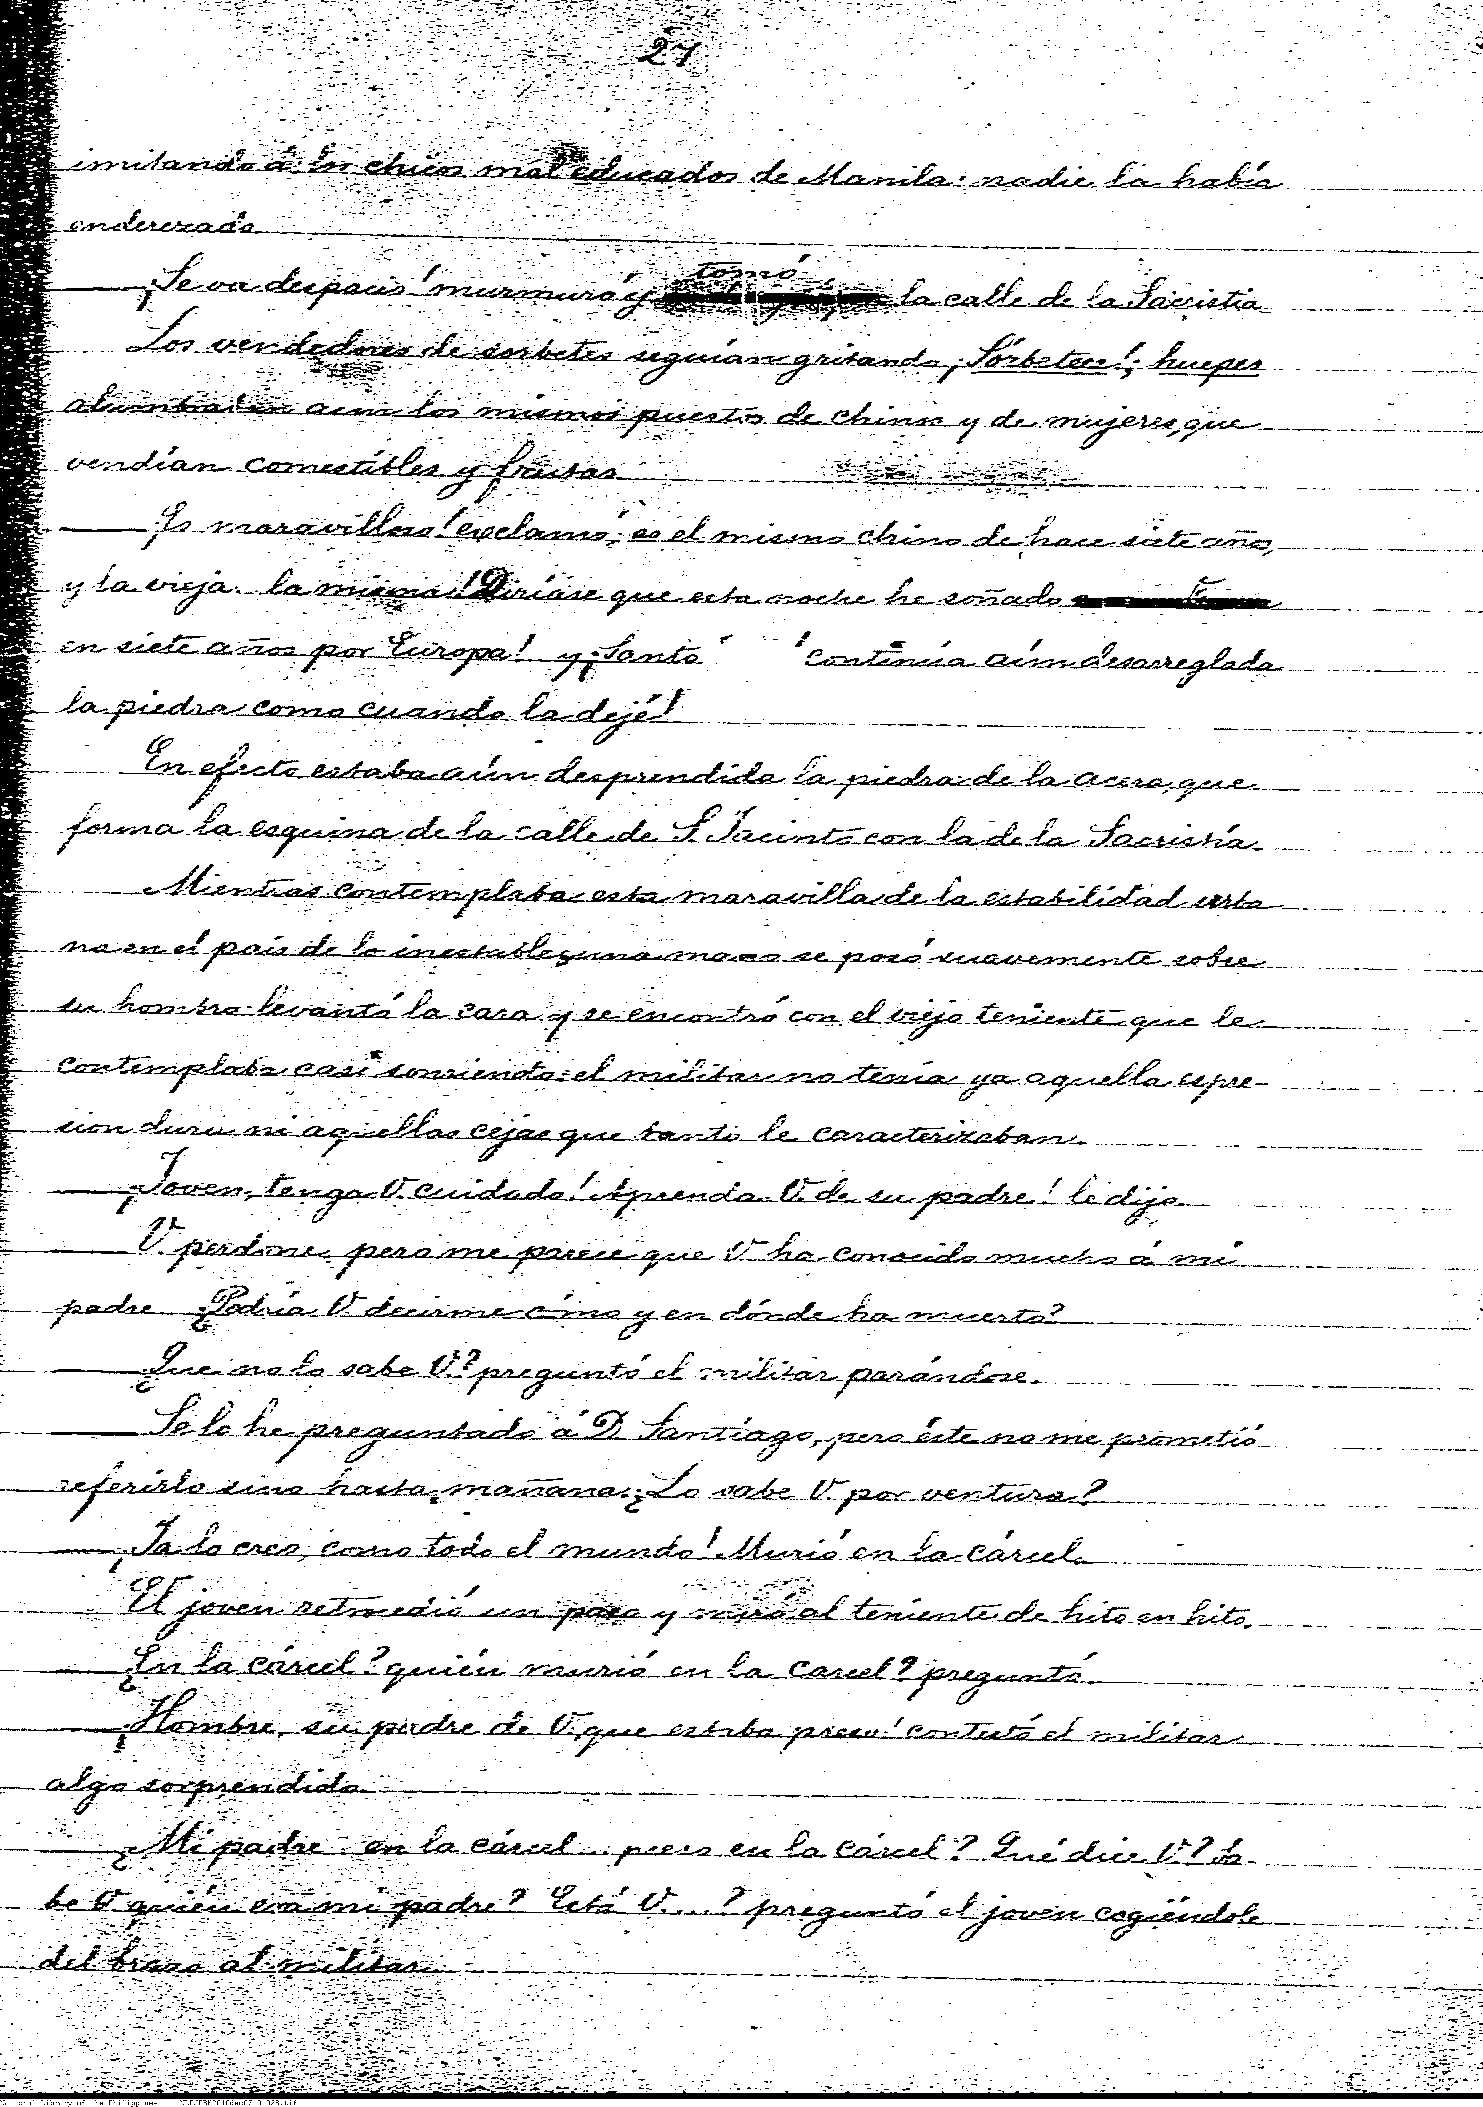 27
imitando á los chicos mal educados de Manila: nadie la había
enderezado.
¡Se va despacio! murmuró y tomó la calle de la Sacristía
Los vendedores de sorbetes seguían gritando ¡Sórbetee!; huepes
alumbraban aun los mismos puestos de chinos y de mujeres, que
vendían comestibles y frutas
—¡Es maravilloso! exclamó; es el mismo chino de hace siete años,
y la vieja la misma! Diríase que esta noche he soñado
en siete años por Europa! y ¡Santo ! continúa aún desarreglada
la piedra como cuando la dejé!
En efecto estaba aún desprendida la piedra de la acera, que
forma la esquina de la calle de S. Jacinto con la de la Sacristía.
Mientras contemplaba esta maravilla de la estabilidad urba
na en el país de lo inestable, una mano se posó suavemente sobre
su hombro levantó la cara y se encontró con el viejo teniente que le
contemplaba casi sonriendo: el militar no tenía ya aquella espre-
sion dura ni aquellas cejas que tanto le caracterizaban.
—¡Joven, tenga V. cuidado! Aprenda V. de su padre! le dijo
—V. perdone, pero me parece que V ha conocido mucho á mi
padre ¿Podría V decirme cómo y en dónde ha muerto?
—¿Que no lo sabe V.? preguntó el militar parándose.
—Se lo he preguntado á D Santiago, pero éste no me prometió
referirlo sino hasta mañana. ¿Lo sabe V. por ventura?
—¡Ya lo creo, como todo el mundo! Murió en la cárcel.
El joven retrocedió un paso y miró al teniente de hito en hito.
—¿En la cárcel? quién murió en la carcel? preguntó.
—¡Hombre, su padre de V, que estaba preso! contestó el militar
algo sorprendido
—¿Mi padre en la cárcel... preso en la cárcel? Qué dice V.? Sa
be V quién era mi padre? Está V....? preguntó el joven cogiéndole
del brazo al militar.